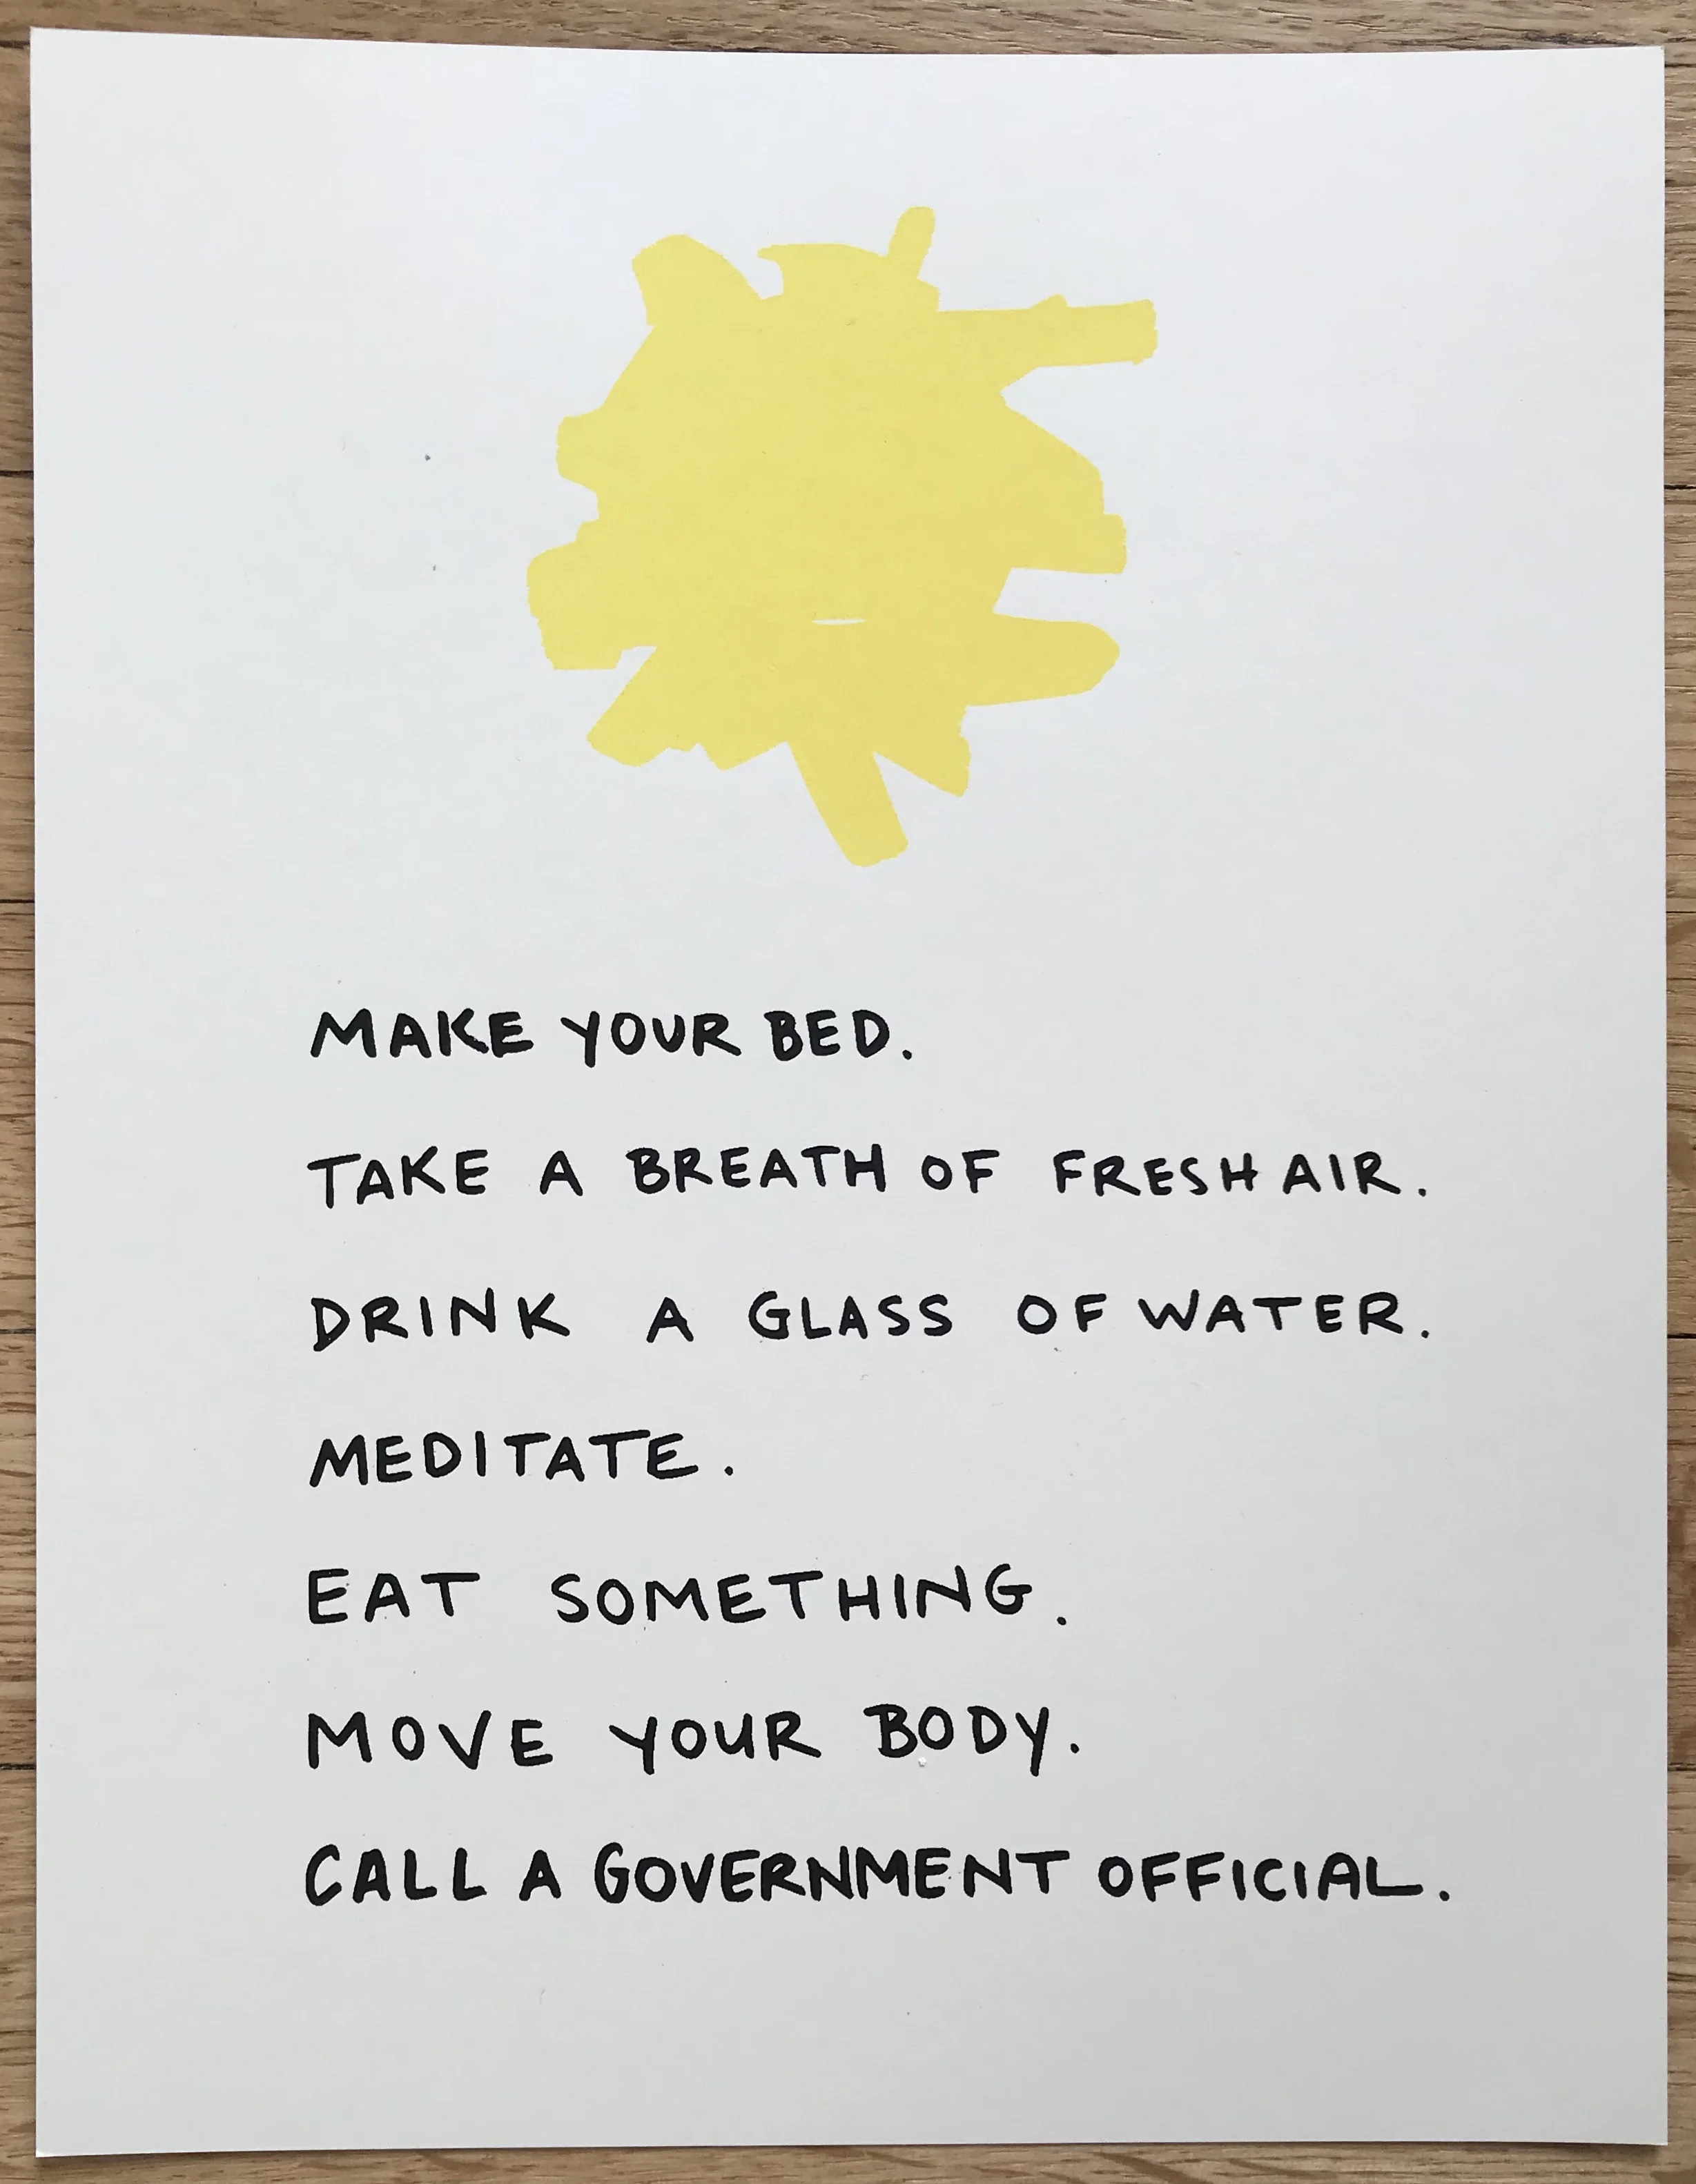 MAKE YOUR BED.
TAKE A BREATH OF FRESH AIR.
DRINK A GLASS OF WATER.
MEDITATE.
EAT SOMETHING.
MOVE YOUR BODY.
CALL A GOVERNMENT OFFICIAL.